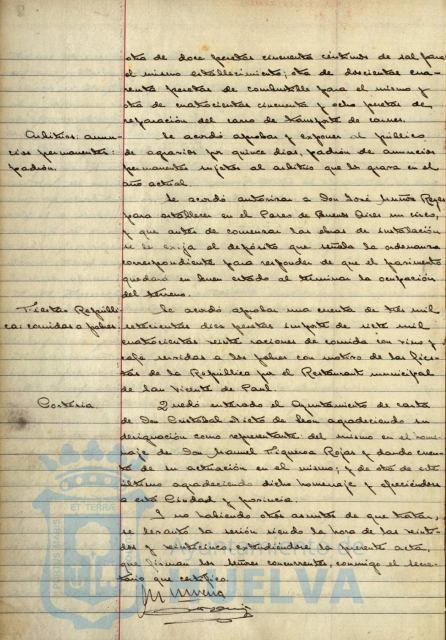 otra de doce pesetas cincuenta céntimos de sal para
el mismo establecimiento; otra de doscientas cua-
renta pesetas de combustible para el mismo y
otra de cuatrocientas cincuenta y ocho pesetas de
reparación del carro de transporte de carnes.
Arbitrios: anun-
cios permanentes:
padrón.
Se acordó aprobar y exponer al público
de agravios por quince días, padrón de anuncios
permanentes sujetos al arbitrio que los grava en el
año actual.
Se acordó autorizar a Don José Muñoz Reyes
para establecer en el Paseo de Buenos Aires un circo,
y que antes de comenzar las obras de instalación
se le exija el depósito que señala la ordenanza
correspondiente para responder de que el pavimento
quedará en buen estado al terminar la ocupación
del terreno.
Fiestas Repúbli-
ca: comidas a pobres
Se acordó aprobar una cuenta de tres mil
setecientas diez pesetas importe de siete mil
cuatrocientas veinte raciones de comida con vino y
café servidas a los pobres con motivo de las fies-
tas de la República por el Restaurant municipal
de San Vicente de Paul.
Cortesía
Quedó enterado el Ayuntamiento de carta
de Don Cristóbal Nieto de León agradeciendo su
designación como representante del mismo en el home-
naje de Don Manuel Figueroa Rojas y dando cuen-
ta de su actuación en el mismo; y de otra de este
último agradeciendo dicho homenaje y ofreciéndose
a esta Ciudad y provincia.
Y no habiendo otros asuntos de que tratar,
se levantó la sesión siendo la hora de las veinti-
dos y veinticinco extendiéndose la presente acta,
que firman los señores concurrentes, conmigo el secre-
tario que certifico.
HUELVA